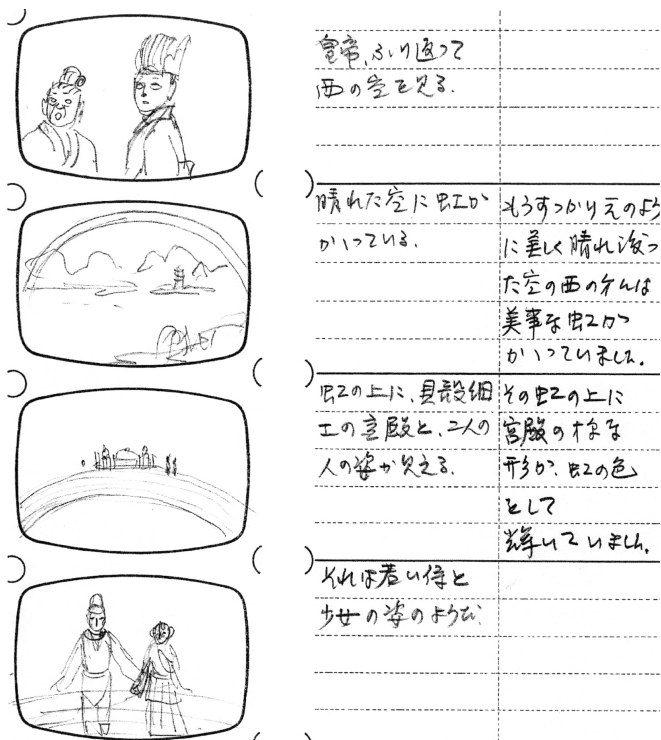 皇帝、ふり返って
西の空を見る.
晴れた空に虹が
かゝっている.
もうすっかり元のよう
に美しく晴れ渡っ
た空の西の方には
美事な虹が
かゝっていました.
虹の上に、貝殻細
工の宮殿と、二人の
人の姿が見える.
その虹の上に
宮殿の様な
形が、虹の色
として
輝いていました.
それは若い侍と
少女の姿のようだ